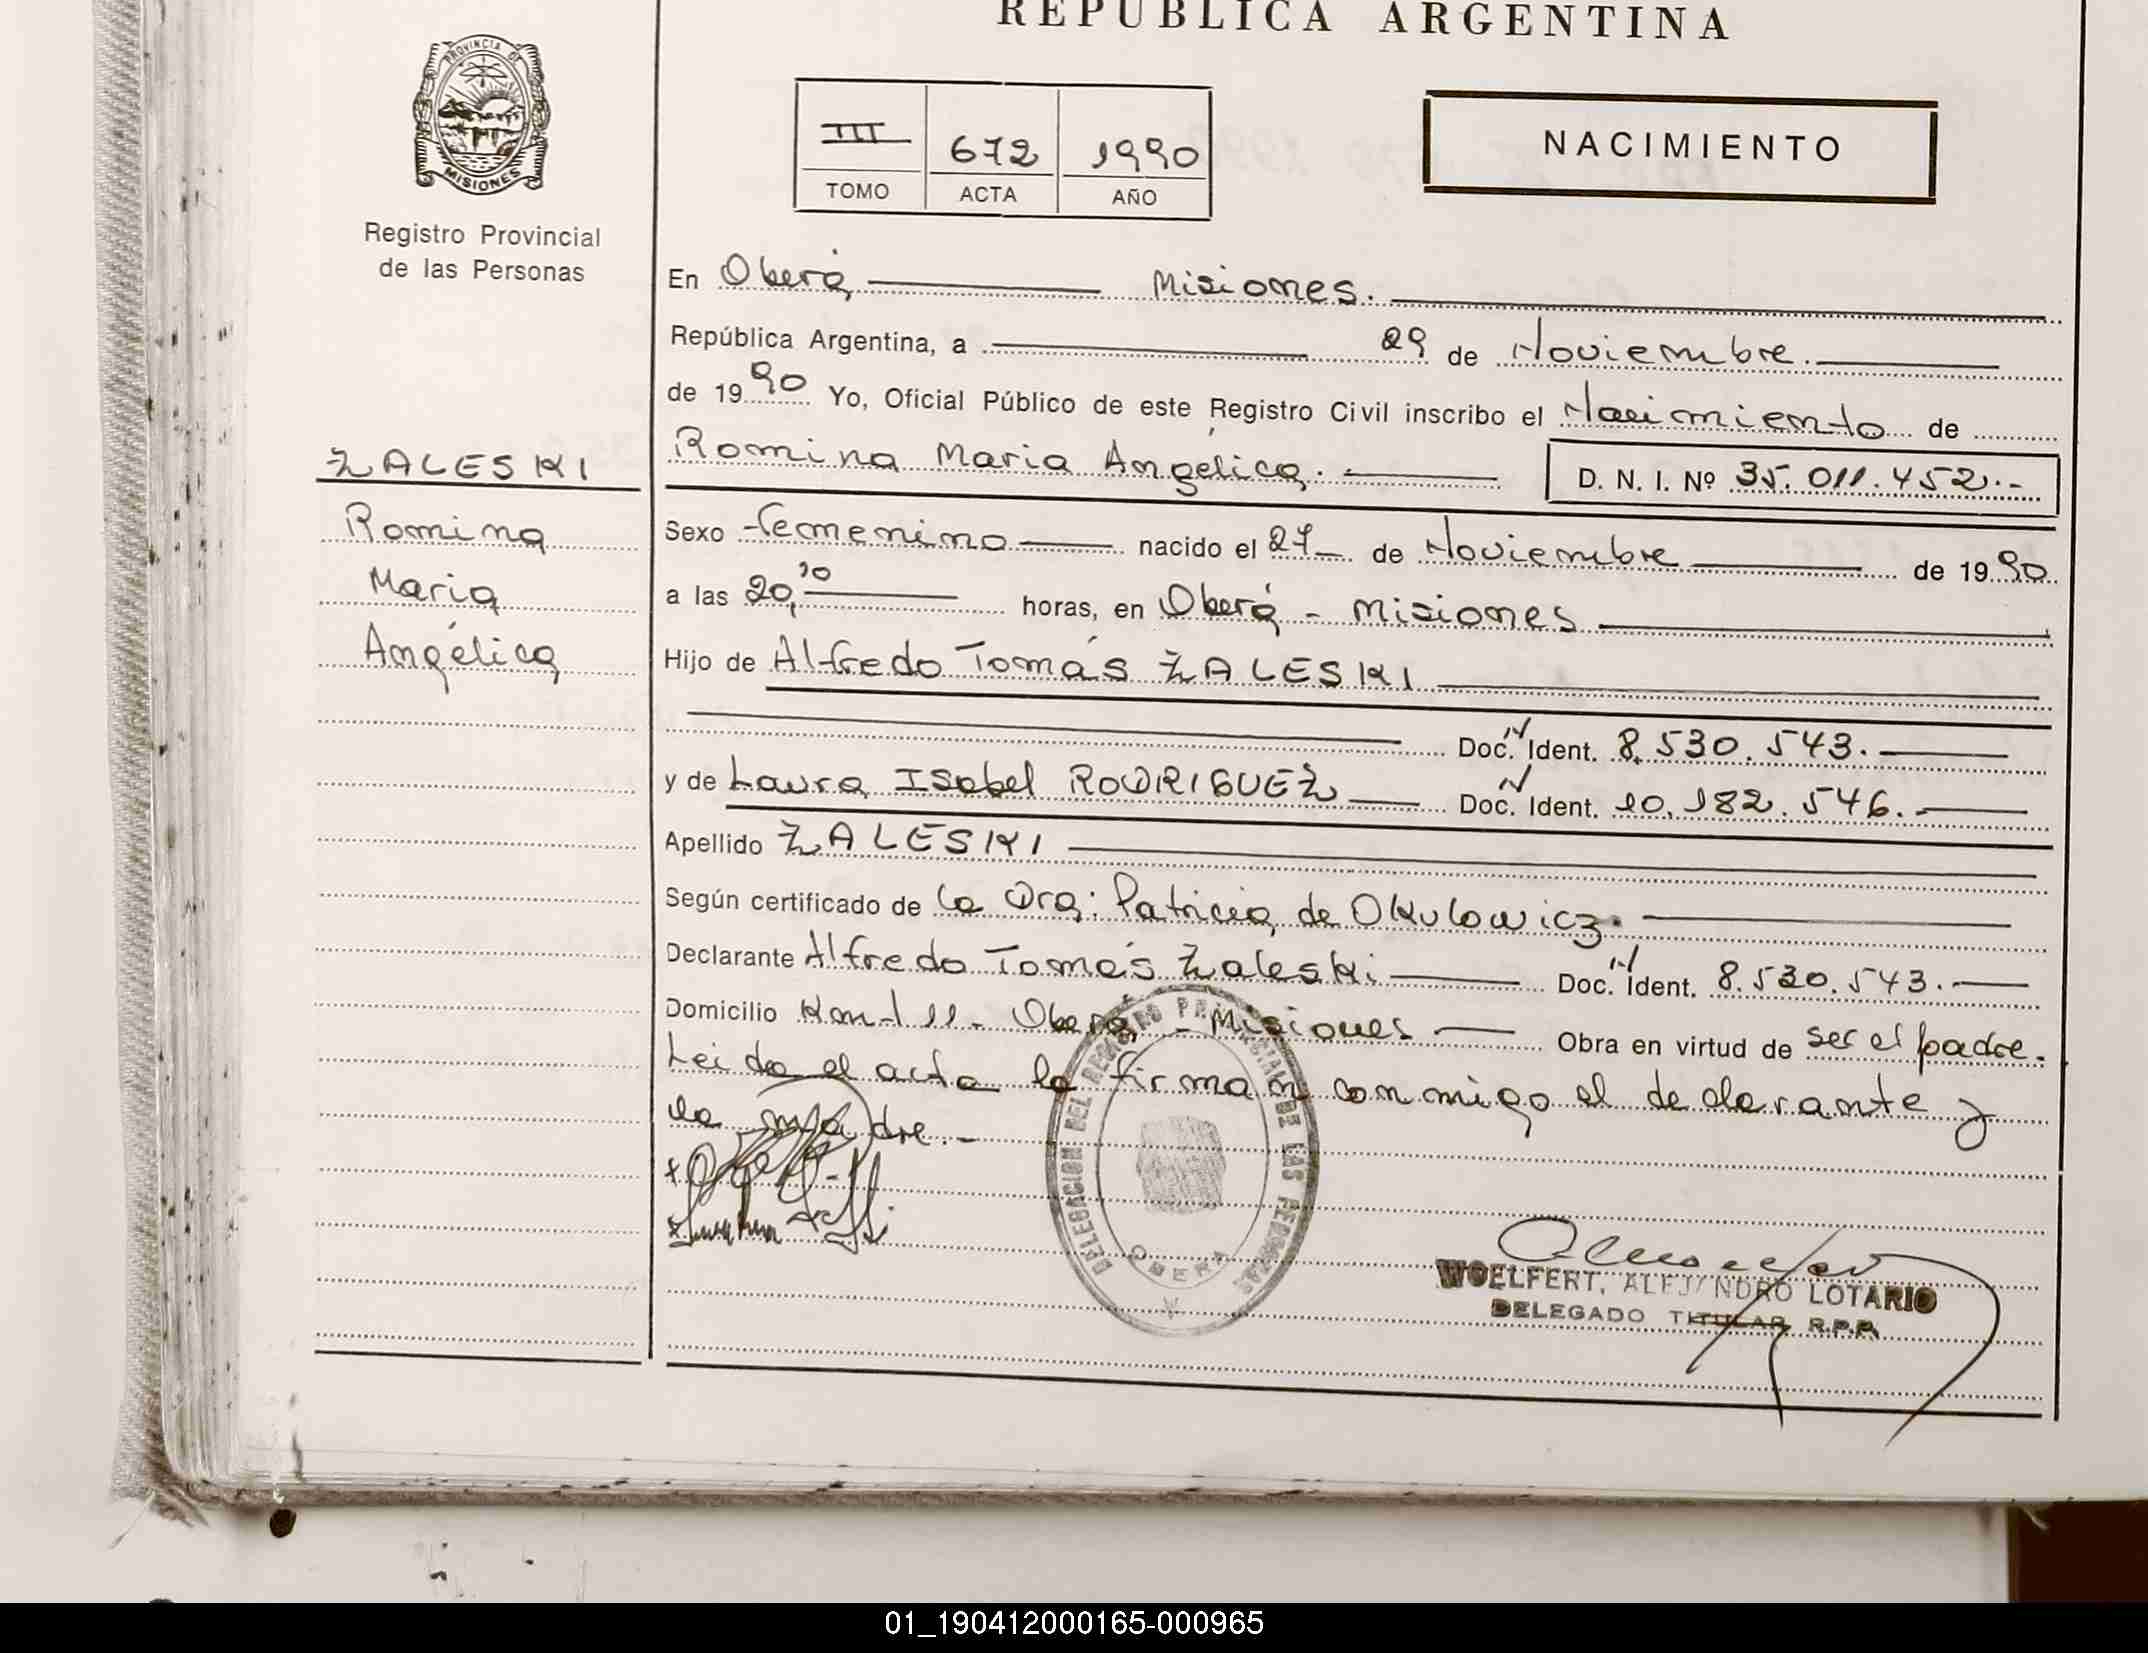 REPUBLICA ARGENTINA
PROVINCIA DE
MISIONES
Registro Provincial
de las Personas
III 672 1990
TOMO ACTA AÑO
NACIMIENTO
En Oberá Misiones.
República Argentina, a 29 de Noviembre.
de 1990 Yo, Oficial Público de este Registro Civil inscribo el Nacimiento de
Romina Maria Angélica. D. N. I. Nº 35.011.452.-
ZALESKI
Romina
Maria
Angélica
Sexo Femenino nacido el 27 de Noviembre de 1990
a las 20,10 horas, en Oberá - Misiones
Hijo de Alfredo Tomás ZALESKI
Doc. N Ident. 8.530.543.
y de Laura Isabel RODRIGUEZ Doc. N Ident. 10.182.546.
Apellido ZALESKI
Según certificado de la Dra: Patricia de Okulowicz.
Declarante Alfredo Tomás Zaleski Doc. N Ident. 8.530.543.
Domicilio Kont 11 - Oberá - Misiones Obra en virtud de ser el padre.
Leida el acta la firman conmigo el declarante y
la madre.-
DELEGACION DEL REGISTRO PROVINCIAL DE LAS PERSONAS
OBERA
WOELFERT, ALEJANDRO LOTARIO
DELEGADO TITULAR R.P.P.
01_190412000165-000965